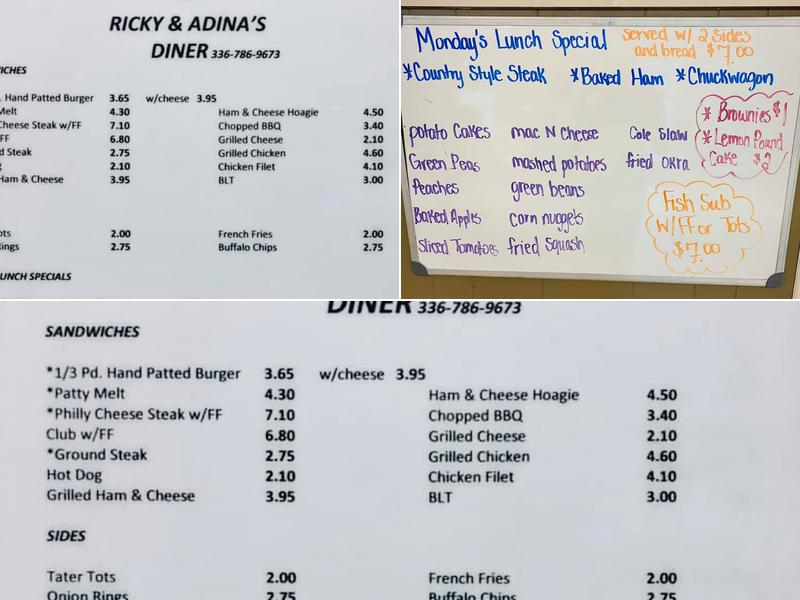 RICKY & ADINA'S
DINER 336-786-9673
ICHES
. Hand Patted Burger 3.65 w/cheese 3.95
Melt 4.30 Ham & Cheese Hoagie 4.50
Cheese Steak w/FF 7.10 Chopped BBQ 3.40
FF 6.80 Grilled Cheese 2.10
d Steak 2.75 Grilled Chicken 4.60
g 2.10 Chicken Filet 4.10
Ham & Cheese 3.95 BLT 3.00
ots 2.00 French Fries 2.00
ings 2.75 Buffalo Chips 2.75
UNCH SPECIALS
Monday's Lunch Special served w/ 2 sides
and bread $7.00
*Country Style Steak *Baked Ham *Chuckwagon
* Brownies $1
* Lemon Pound
Cake $2
potato Cakes mac N Cheese Cole Slaw
Green Peas mashed potatoes fried okra
Peaches green beans
Baked Apples corn nuggets
Sliced Tomatoes fried Squash
Fish Sub
W/FF or Tots
$7.00
DINER 336-786-9673
SANDWICHES
*1/3 Pd. Hand Patted Burger 3.65 w/cheese 3.95
*Patty Melt 4.30 Ham & Cheese Hoagie 4.50
*Philly Cheese Steak w/FF 7.10 Chopped BBQ 3.40
Club w/FF 6.80 Grilled Cheese 2.10
*Ground Steak 2.75 Grilled Chicken 4.60
Hot Dog 2.10 Chicken Filet 4.10
Grilled Ham & Cheese 3.95 BLT 3.00
SIDES
Tater Tots 2.00 French Fries 2.00
Onion Rings 2.75 Buffalo Chips 2.75